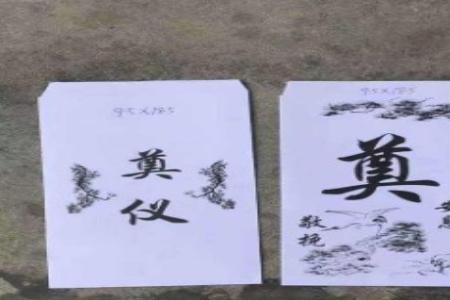 9.5×18.5
奠
仪
9.5×18.5
奠
敬
挽